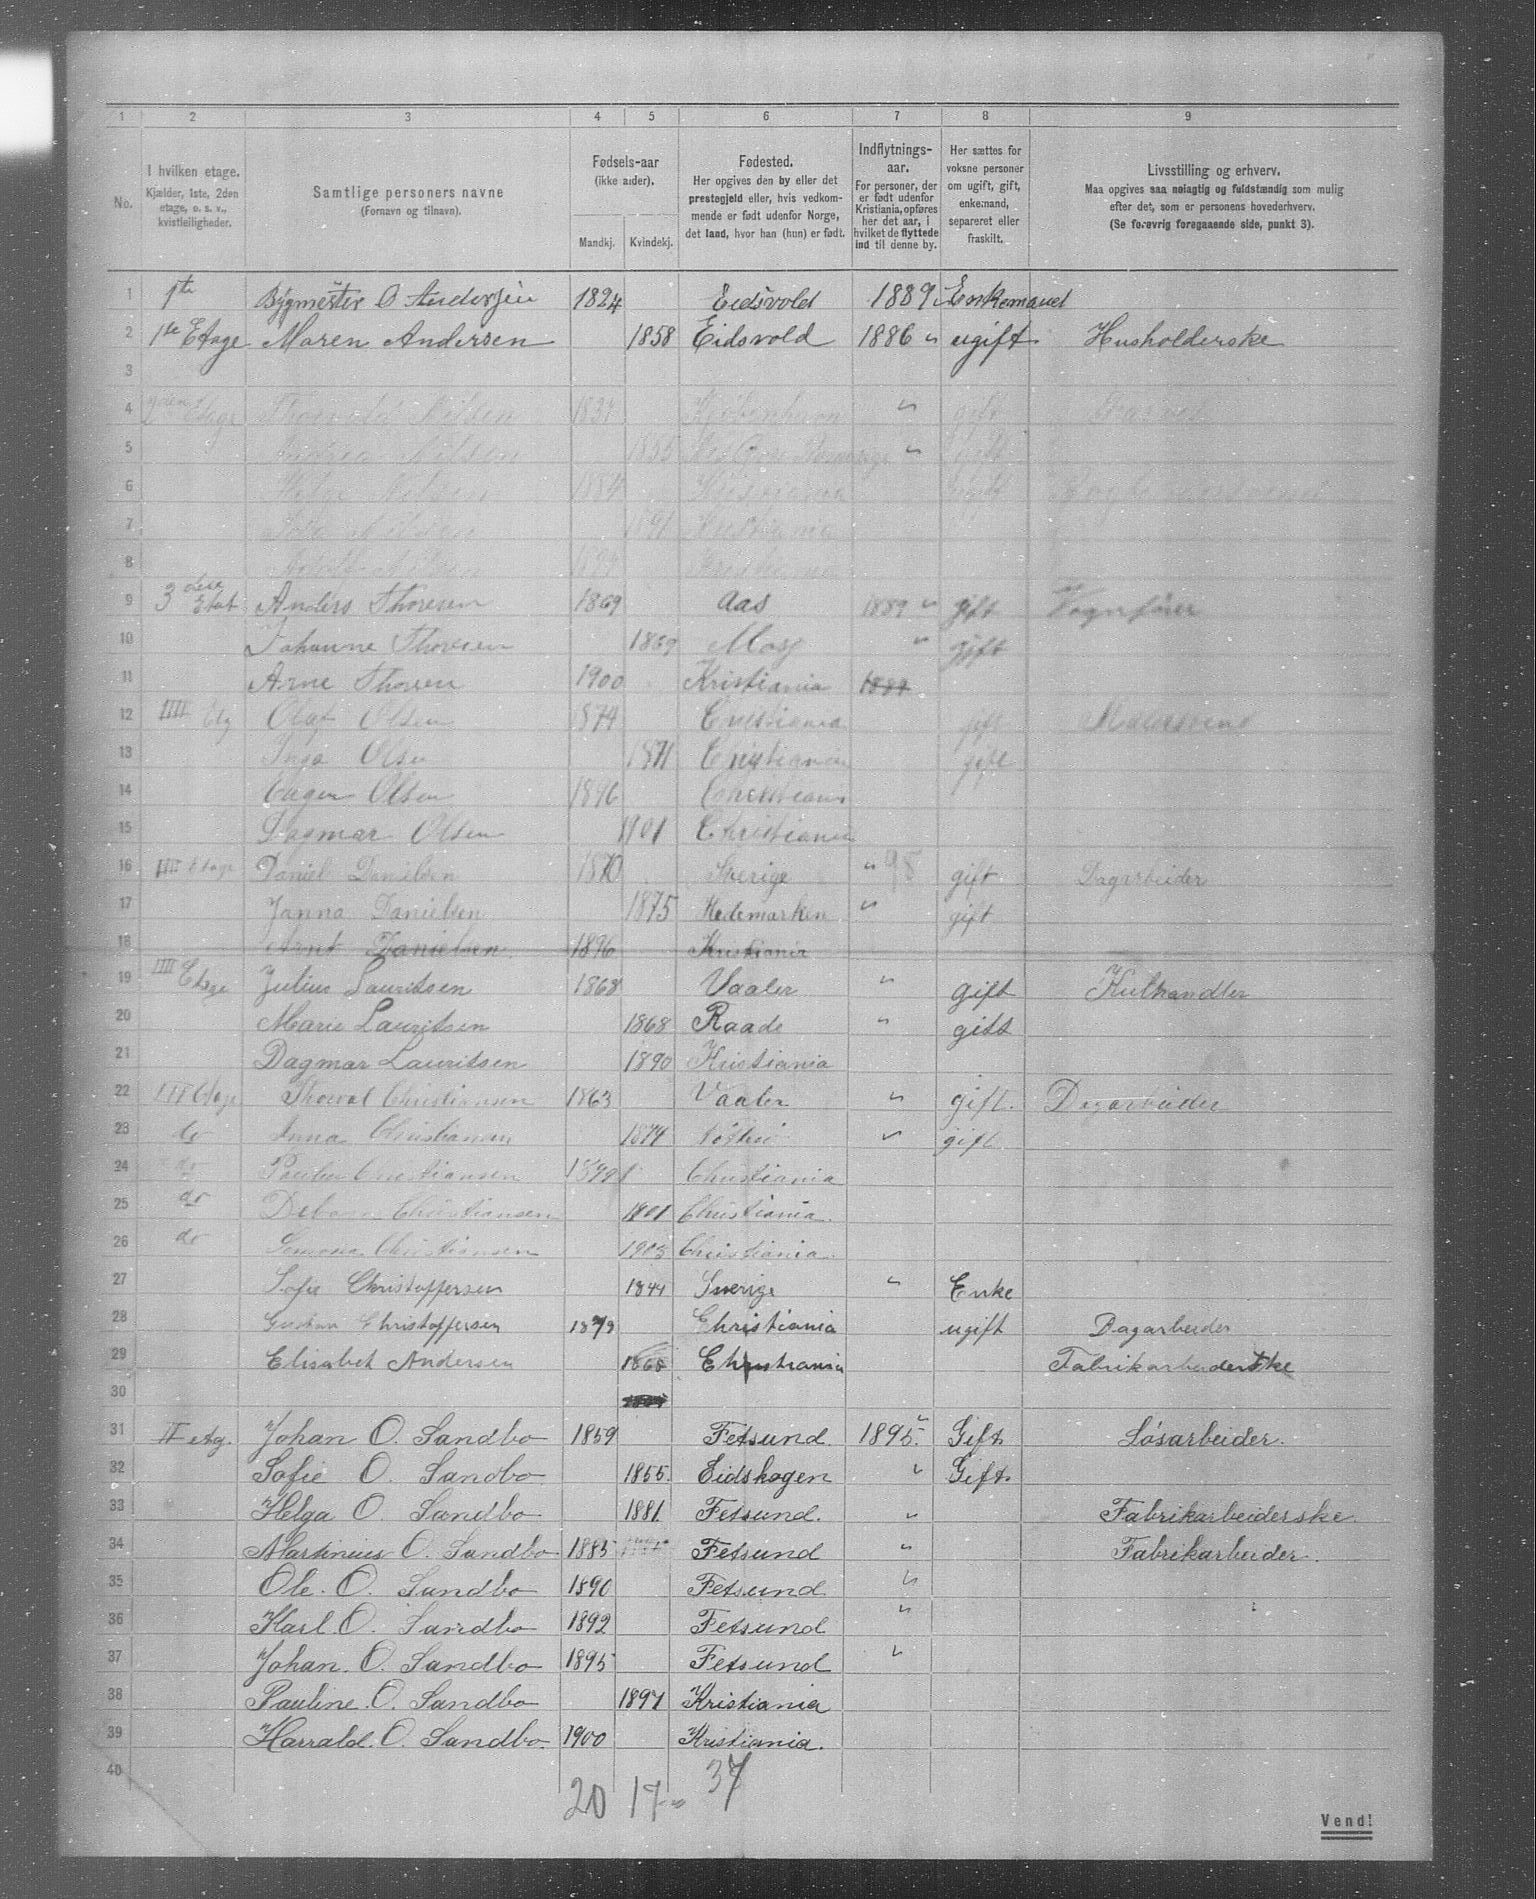 1 2 3 4 5 6 7 8 9
No.
I hvilken etage.
Kjælder, 1ste, 2den
etage, o. s. v.,
kvistleiligheder.
Samtlige personers navne
(Fornavn og tilnavn).
Fødsels-aar
(ikke alder).
Mandkj. Kvindekj.
Fødested.
Her opgives den by eller det
prestegjeld eller, hvis vedkom-
mende er født udenfor Norge,
det land, hvor han (hun) er født.
Indflytnings-
aar.
For personer, der
er født udenfor
Kristiania, opføres
her det aar, i
hvilket de flyttede
ind til denne by.
Her sættes for
voksne personer
om ugift, gift,
enkemand,
separeret eller
fraskilt.
Livsstilling og erhverv.
Maa opgives saa nøiagtig og fuldstændig som mulig
efter det, som er personens hovederhverv.
(Se forøvrig foregaaende side, punkt 3).
1 1te Bygmester O Andersen 1824 Eidsvold 1889 Enkemand
2 1ste Etage Maren Andersen 1858 Eidsvold 1886 " ugift Husholderske
3
4 Etage Thorvald Nilsen Kjøbenhavn " gift
5 Nilsen 1855 " gift
6 Nilsen 1884 Kristiania Ugift
7 Nilsen 1891 Kristiania
8 Nilsen Kristiania
9 3 Etat Anders Thoresen 1869 Aas 1889 " gift Vognfører
10 Johanne Thoresen 1869 Moss " gift
11 Arne Thoresen 1900 Kristiania
12 IIII Etg Olaf Olsen 1874 Cristiania gift Malersvend
13 Inga Olsen 1871 Cristiania gift
14 Olsen 1896
15 Dagmar Olsen 1901 Christiania
16 IIII Etage Daniel Danielsen 1870 Sverige " 98 gift Dagarbeider
17 Janna Danielsen 1875 Hedemarken " gift
18 Arnt Danielsen 1896 Kristiania
19 IIII Etage Julius Lauritsen 1868 Vaaler " gift Kulhandler
20 Marie Lauritsen 1868 Raade " gift
21 Dagmar Lauritsen 1890 Kristiania
22 Etage Thorval Christiansen 1863 Vaaler " gift. Dagarbeider
23 do Anna Christiansen 1874 " gift
24 do Christiansen Christiania
25 do Christiansen 1901 Christiania.
26 do Christiansen 1903 Christiania.
27 Sofie Christoffersen 1844 Sverige " Enke
28 Gustav Christoffersen 1879 Christiania ugift Dagarbeider
29 Elisabet Andersen 1868 Christiania Fabrikarbeiderske
30
31 II etg. Johan O. Sandbo 1859 Fetsund 1895. " Gift Løsarbeider.
32 Sofie O. Sandbo 1855. Eidskogen " Gift.
33 Helga O. Sandbo 1881. Fetsund. " Fabrikarbeiderske.
34 Martinius O. Sandbo 1885 Fetsund " Fabrikarbeider.
35 Ole. O. Sandbo 1890 Fetsund "
36 Karl O. Sandbo 1892 Fetsund "
37 Johan. O. Sandbo 1895 Fetsund "
38 Pauline. O. Sandbo 1897 Kristiania
39 Harrald. O. Sandbo. 1900 Kristiania.
40
20 17 = 37
Vend!